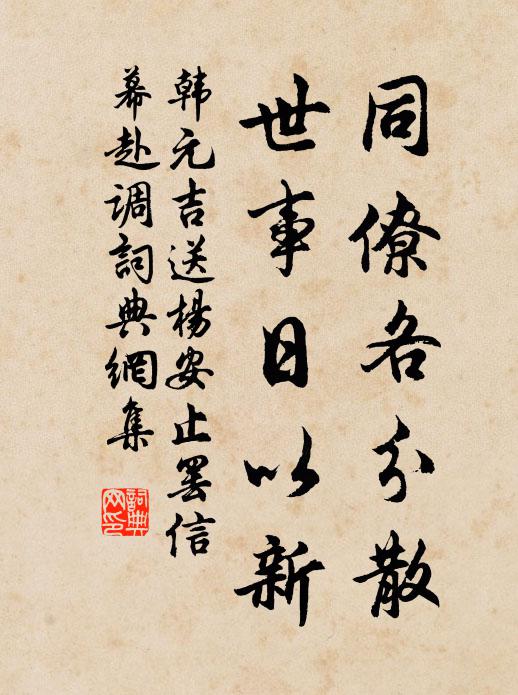 同僚各分散
世事日以新
韩元吉送楊安止罢信
幕赴调詞典網集
詞典網印